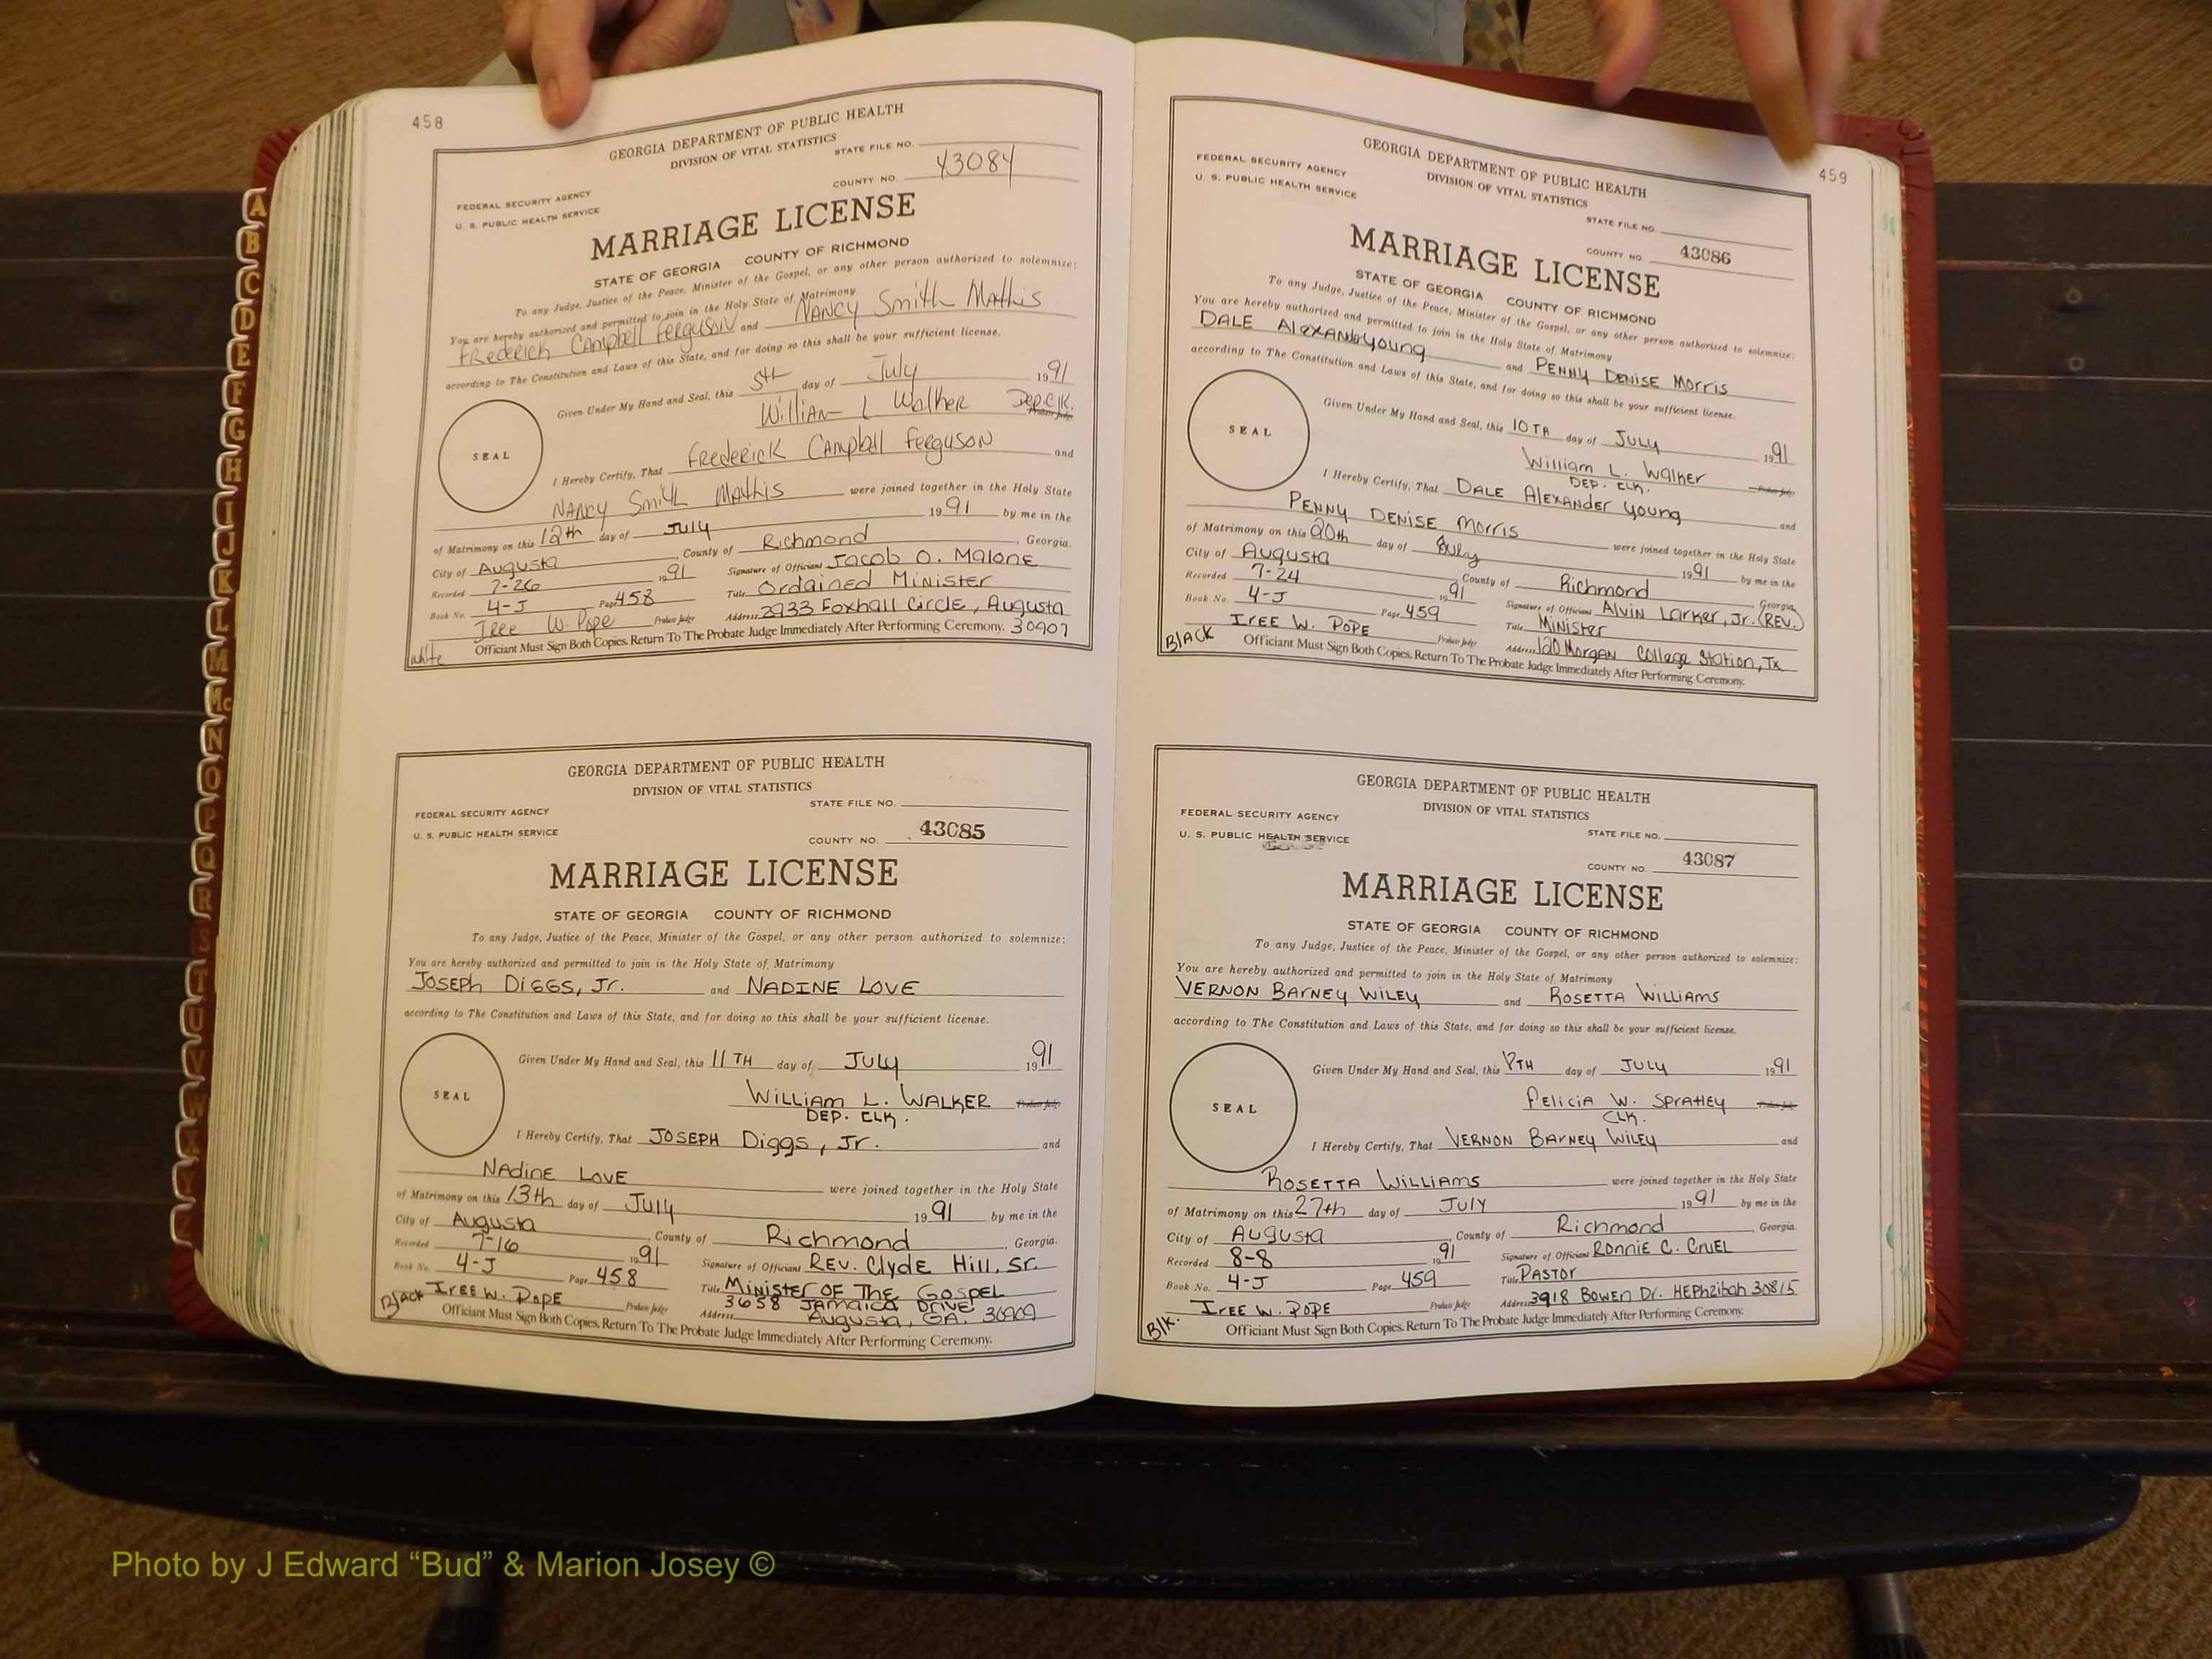 458
GEORGIA DEPARTMENT OF PUBLIC HEALTH
DIVISION OF VITAL STATISTICS
STATE FILE NO.
FEDERAL SECURITY AGENCY
U. S. PUBLIC HEALTH SERVICE
COUNTY NO. 43084
MARRIAGE LICENSE
STATE OF GEORGIA COUNTY OF RICHMOND
To any Judge, Justice of the Peace, Minister of the Gospel, or any other person authorized to solemnize:
You are hereby authorized and permitted to join in the Holy State of Matrimony
Frederick Campbell Ferguson and Nancy Smith Mathis
according to The Constitution and Laws of this State, and for doing so this shall be your sufficient license.
Given Under My Hand and Seal, this 5th day of July 1991
William L Walker Dep. Clk. Probate Judge
SEAL
I Hereby Certify, That Frederick Campbell Ferguson and
Nancy Smith Mathis were joined together in the Holy State
of Matrimony on this 12th day of July 1991 by me in the
City of Augusta, County of Richmond, Georgia.
Recorded 7-26 1991 Signature of Officiant Jacob O. Malone
Book No. 4-J Page 458 Title Ordained Minister
Iree W. Pope Probate Judge Address 2933 Foxhall Circle, Augusta
Officiant Must Sign Both Copies. Return To The Probate Judge Immediately After Performing Ceremony. 30907
White
GEORGIA DEPARTMENT OF PUBLIC HEALTH
DIVISION OF VITAL STATISTICS
STATE FILE NO.
FEDERAL SECURITY AGENCY
U. S. PUBLIC HEALTH SERVICE
COUNTY NO. 43085
MARRIAGE LICENSE
STATE OF GEORGIA COUNTY OF RICHMOND
To any Judge, Justice of the Peace, Minister of the Gospel, or any other person authorized to solemnize:
You are hereby authorized and permitted to join in the Holy State of Matrimony
Joseph Diggs, Jr. and Nadine Love
according to The Constitution and Laws of this State, and for doing so this shall be your sufficient license.
Given Under My Hand and Seal, this 11TH day of July 1991
William L. Walker Probate Judge
DEP. CLK.
SEAL
I Hereby Certify, That Joseph Diggs, Jr. and
Nadine Love were joined together in the Holy State
of Matrimony on this 13th day of July 1991 by me in the
City of Augusta, County of Richmond, Georgia.
Recorded 7-16 1991 Signature of Officiant Rev. Clyde Hill, Sr.
Book No. 4-J Page 458 Title Minister OF The Gospel
Iree W. Pope Probate Judge Address 3658 Jamaica Drive
Augusta, GA. 30909
Black
Officiant Must Sign Both Copies. Return To The Probate Judge Immediately After Performing Ceremony.
459
GEORGIA DEPARTMENT OF PUBLIC HEALTH
DIVISION OF VITAL STATISTICS
STATE FILE NO.
FEDERAL SECURITY AGENCY
U. S. PUBLIC HEALTH SERVICE
COUNTY NO. 43086
MARRIAGE LICENSE
STATE OF GEORGIA COUNTY OF RICHMOND
To any Judge, Justice of the Peace, Minister of the Gospel, or any other person authorized to solemnize:
You are hereby authorized and permitted to join in the Holy State of Matrimony
Dale Alexander Young and Penny Denise Morris
according to The Constitution and Laws of this State, and for doing so this shall be your sufficient license.
Given Under My Hand and Seal, this 10TH day of July 1991
William L. Walker Probate Judge
DEP. CLK.
SEAL
I Hereby Certify, That Dale Alexander Young and
Penny Denise Morris were joined together in the Holy State
of Matrimony on this 20th day of July 1991 by me in the
City of Augusta, County of Richmond, Georgia
Recorded 7-24 1991 Signature of Officiant Alvin Larker, Jr. (REV.)
Book No. 4-J Page 459 Title Minister
Iree W. Pope Probate Judge Address 120 Morgan College Station, Tx
Black
Officiant Must Sign Both Copies. Return To The Probate Judge Immediately After Performing Ceremony.
GEORGIA DEPARTMENT OF PUBLIC HEALTH
DIVISION OF VITAL STATISTICS
STATE FILE NO.
FEDERAL SECURITY AGENCY
U. S. PUBLIC HEALTH SERVICE
COUNTY NO. 43087
MARRIAGE LICENSE
STATE OF GEORGIA COUNTY OF RICHMOND
To any Judge, Justice of the Peace, Minister of the Gospel, or any other person authorized to solemnize:
You are hereby authorized and permitted to join in the Holy State of Matrimony
Vernon Barney Wiley and Rosetta Williams
according to The Constitution and Laws of this State, and for doing so this shall be your sufficient license.
Given Under My Hand and Seal, this day of July 1991
Felicia W. Spratley
CLK.
SEAL
I Hereby Certify, That Vernon Barney Wiley and
Rosetta Williams were joined together in the Holy State
of Matrimony on this 27th day of July 1991 by me in the
City of Augusta, County of Richmond, Georgia.
Recorded 8-8 1991 Signature of Officiant Ronnie C. Cruel
Book No. 4-J Page 459 Title Pastor
Iree W. Pope Probate Judge Address 3918 Bowen Dr. Hephzibah 30815
Blk.
Officiant Must Sign Both Copies. Return To The Probate Judge Immediately After Performing Ceremony.
A
B
C
D
E
F
G
H
I
J
K
L
M
Mc
N
O
P
Q
R
S
T
U
V
W
Photo by J Edward “Bud” & Marion Josey ©